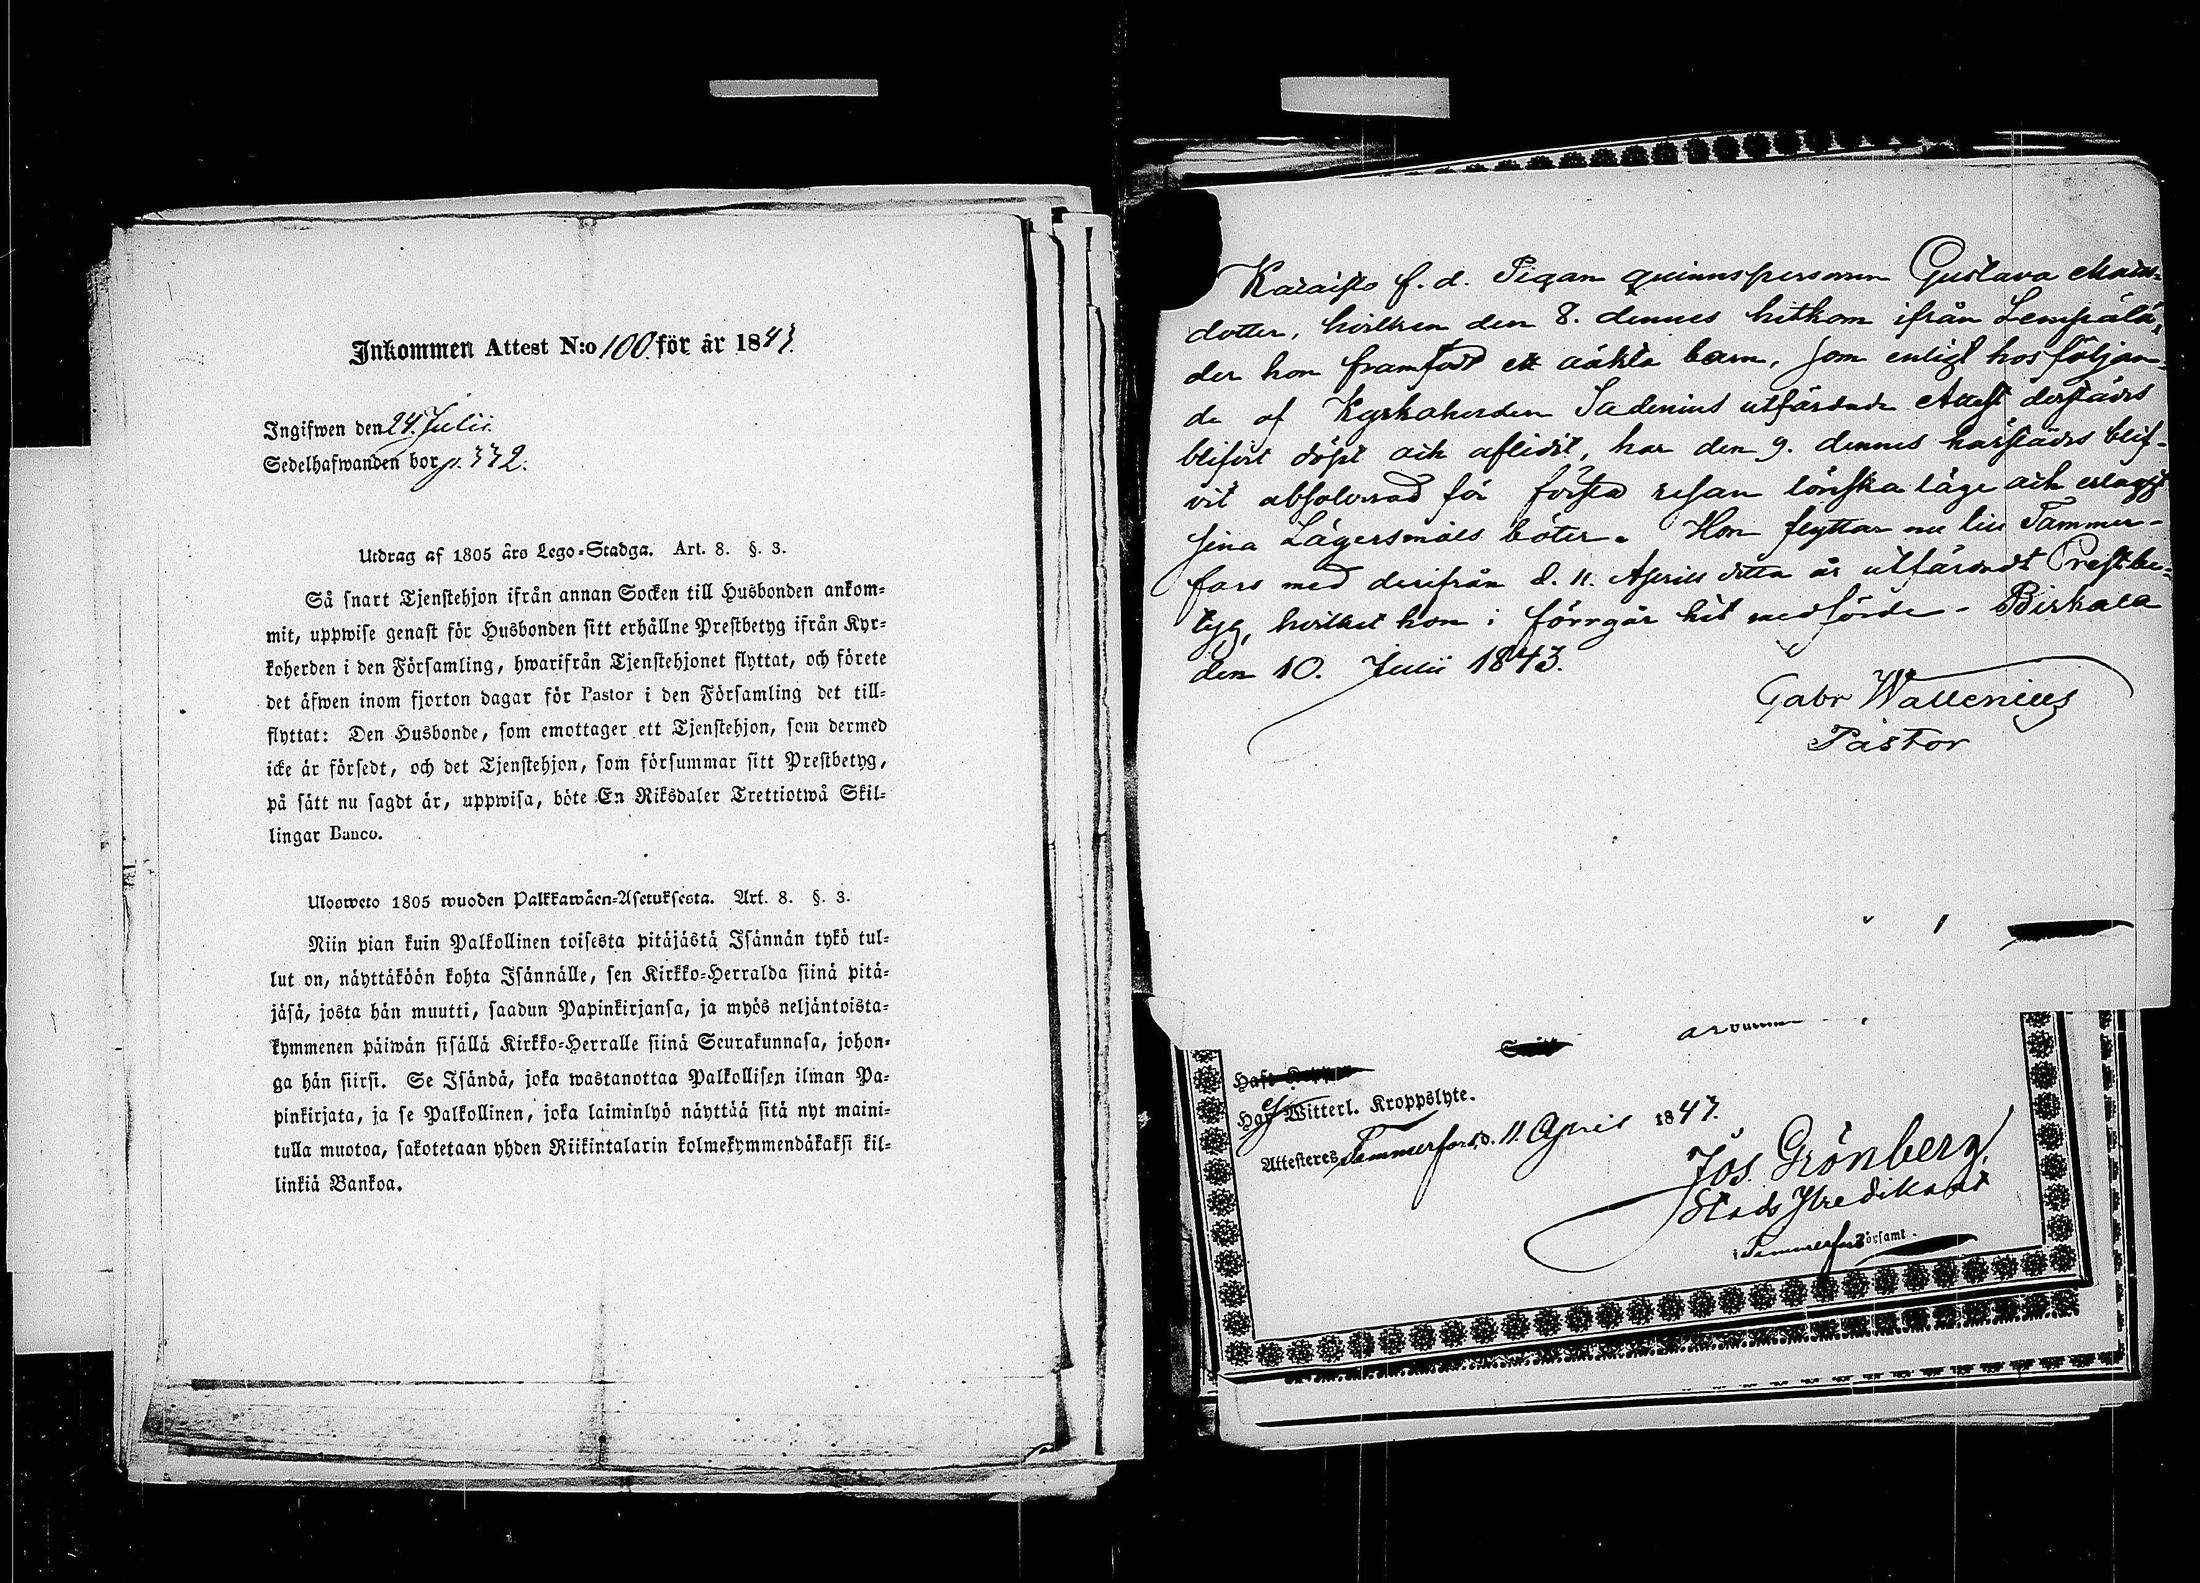 Inkommen Attest N:o 100. för år 1843.
Ingifwen den 24. Julii.
Sedelhafwanden bor p. 332.
Utdrag af 1805 års Lego-Stadga. Art. 8. §. 3.
Så snart Tjenstehjon ifrån annan Socken till Husbonden ankom-
mit, uppwise genast för Husbonden sitt erhållne Prestbetyg ifrån Kyr-
koherden i den Församling, hwarifrån Tjenstehjonet flyttat, och förete
det äfwen inom fjorton dagar för Pastor i den Församling det till-
flyttat: Den Husbonde, som emottager ett Tjenstehjon, som dermed
icke är försedt, och det Tjenstehjon, som försummar sitt Prestbetyg,
på sätt nu sagdt är, uppwisa, böte En Riksdaler Trettiotwå Skil-
lingar Banco.
Ulosweto 1805 wuoden Palkkawäen-Asetuksesta. Art. 8. §. 3.
Niin pian kuin Palkollinen toisesta pitäjästä Isännän tykö tul-
lut on, näyttäköön kohta Isännälle, sen Kirkko-Herralda siinä pitä-
jäsä, josta hän muutti, saadun Papinkirjansa, ja myös neljäntoista-
kymmenen päiwän sisällä Kirkko-Herralle siinä Seurakunnasa, johon-
ga hän siirsi. Se Isändä, joka wastanottaa Palkollisen ilman Pa-
pinkirjata, ja se Palkollinen, joka laiminlyö näyttää sitä nyt maini-
tulla muotoa, sakotetaan yhden Riikintalarin kolmekymmendäkaksi kil-
linkiä Bankoa.
f. d. Pigan qvinnspersonen Gustava Mats-
dotter, hvilken den 8. dennes hitkom ifrån Lempälä,
der hon framfödt ett oäkta barn, som enligt hosföljan-
de af Kyrkoherden utfärdade Attest derstädes
blifvit döpt och aflidit, har den 9. dennes härstädes blif-
vit absolverad för första resan lönskaläge och erlagt
sina Lägersmåls böter. Hon flyttar nu till Tammer-
fors med derifrån d. 11. Aprill detta år utfärdadt Prestbe-
tyg, hvilket hon i förrgår hit medförde. Birkala
den 10. Julii 1843.
Gabr Wallenius
Pastor
Haf Witterl. Kroppslyte.
Attesteres Tammerfors d. 11. April 1843.
Jos. Grönberg,
Stads Predikant
i Tammerfors Församl.